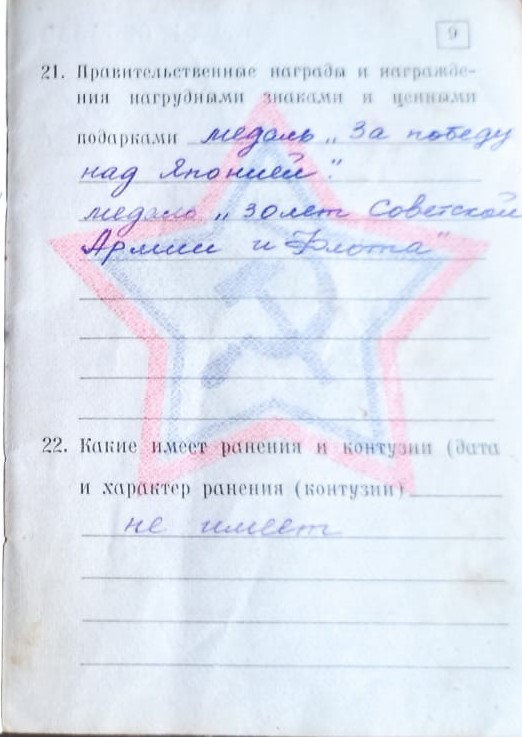 9
21. Правительственные награды и награжде-
ния нагрудными знаками и ценными
подарками медаль „За победу
над Японией".
медаль „30 лет Советской
Армии и Флота"
22. Какие имеет ранения и контузии (дата
и характер ранения (контузии)
не имеет